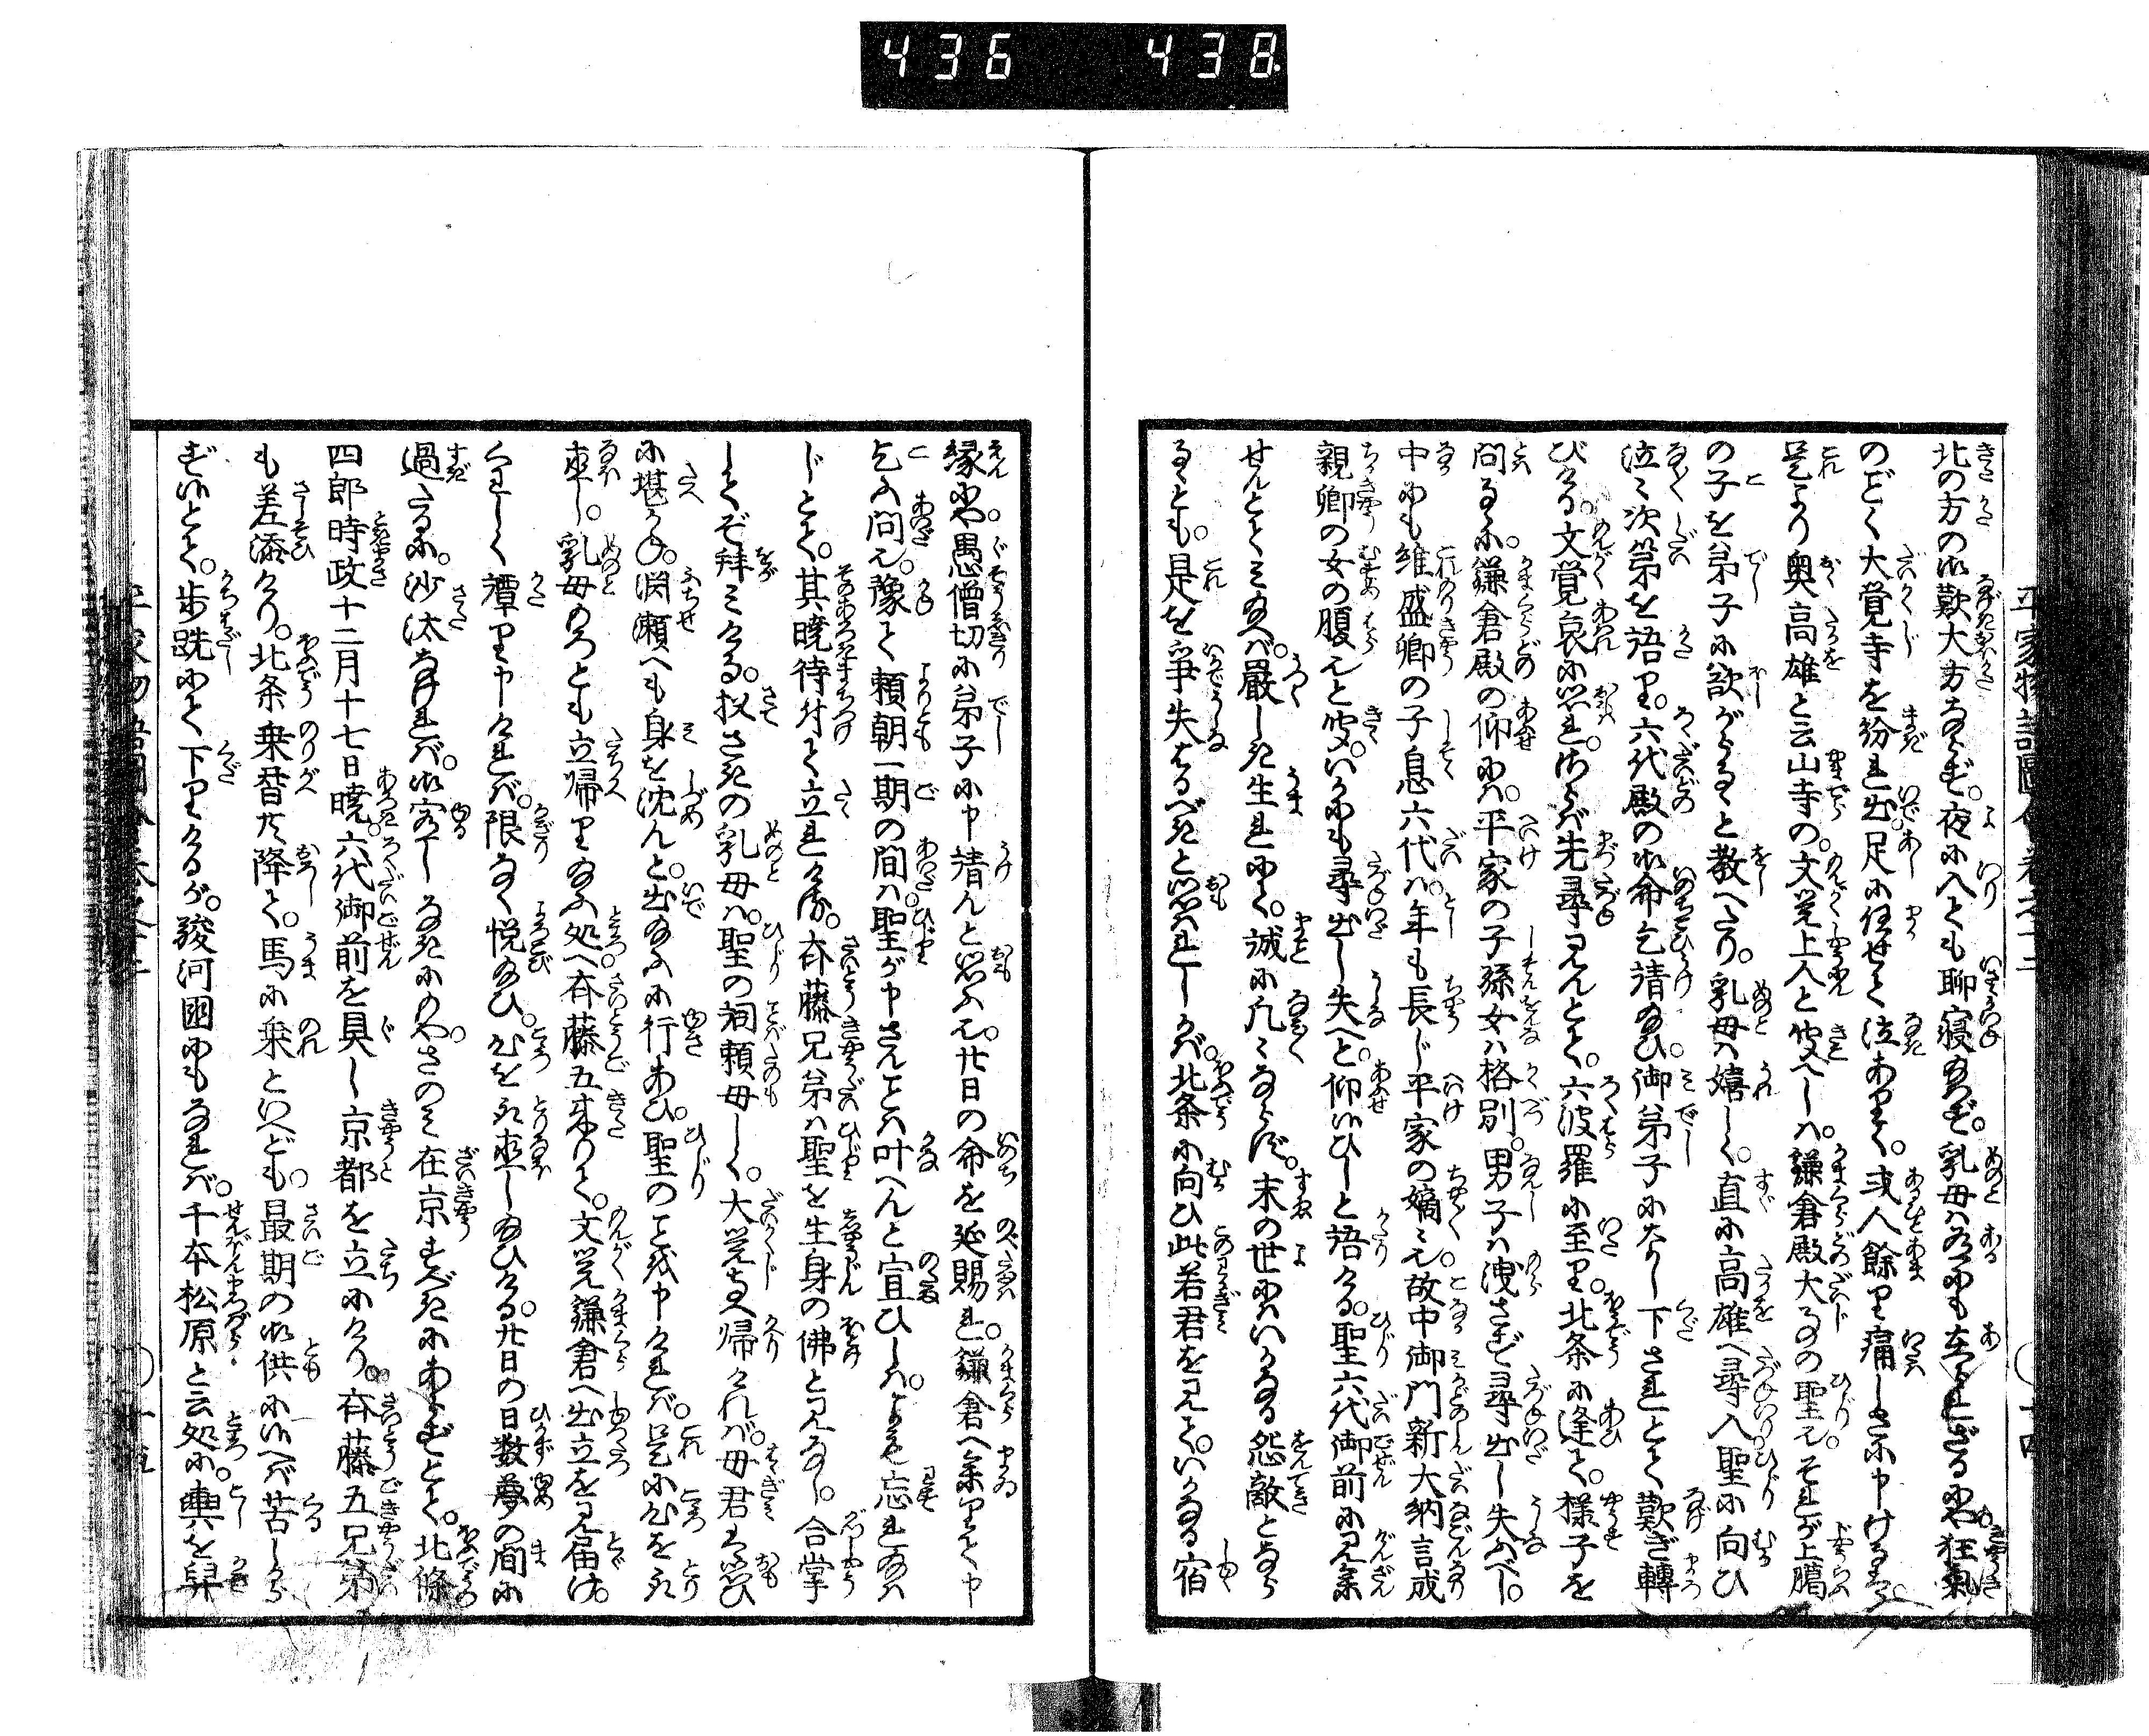 436 438
平家物語圖會巻之十二
北の方の御歎大方ならず。夜に入とも聊寝給はず。乳母は有にも在られざるにや狂氣
のごとく大覚寺を紛れ出。足に任せて泣ありく。或人餘り痛しさに申けるは
是より奥高雄と云山寺の。文覚上人と聞へしは。鎌倉殿大事の聖也。それが上臈
の子を弟子に欲がらると教へたり。乳母は嬉しく。直に高雄へ尋入聖に向ひ
泣々次第を語り。六代殿の御命乞請給ひ。御弟子になし下されとて歎ぎ轉
びける。文覚哀に思はれ。さらば先尋見んとて。六波羅に至り。北条に逢て。様子を
問るゝに。鎌倉殿の仰には。平家の子孫女は格別。男子は洩さず尋出し失ふべし。
中にも維盛卿の子息六代は。年も長じ平家の嫡々也。故中御門新大納言成
親卿の女の腹也と聞。いかにも尋出し失へと。仰候ひしと語ける。聖六代御前に見参
せんとて見給へば。厳しき生れにて。誠に凡々ならず。末の世にはいかなる怨敵となら
るゝとも。是を争失はるべきと思はれしかば。北条に向ひ此若君を見て。いかなる宿
縁にや。愚僧切に弟子に申請んと思ふ也。廿日の命を延賜れ。鎌倉へ参りて申
乞ふ間也。豫て頼朝一期の間は。聖が申さんことは叶へんと宣ひしは。よも忘れ給は
じとて。其暁待付て立れける。斉藤兄弟は聖を生身の佛と見なし。合掌
してぞ拝みける。扨さきの乳母は。聖の詞頼母しく。大覚寺へ帰りければ。母君は思ひ
に堪かね。渕瀬へも身を沈んと。出給ふに行あひ。聖のことを申ければ。是に心を取
直し。乳母のろとも立帰り給ふ処へ斉藤五来りて。文覚鎌倉へ出立を見届け。
くはしく譚り申ければ。限なく悦給ひ。心を取直し給ひける。廿日の日数夢の間に
過たるに。沙汰なければ。御宥しなきにのや。さのみ在京すべきにあらずとて。北條
四郎時政十二月十七日暁。六代御前を具し京都を立にけり。斉藤五兄弟
も差添けり。北条乗替共降て。馬に乗といへども。最期の御供に候へば苦しから
ず候とて。歩跣にて下りけるが。駿河国にもなれば。千本松原と云処に。輿を舁